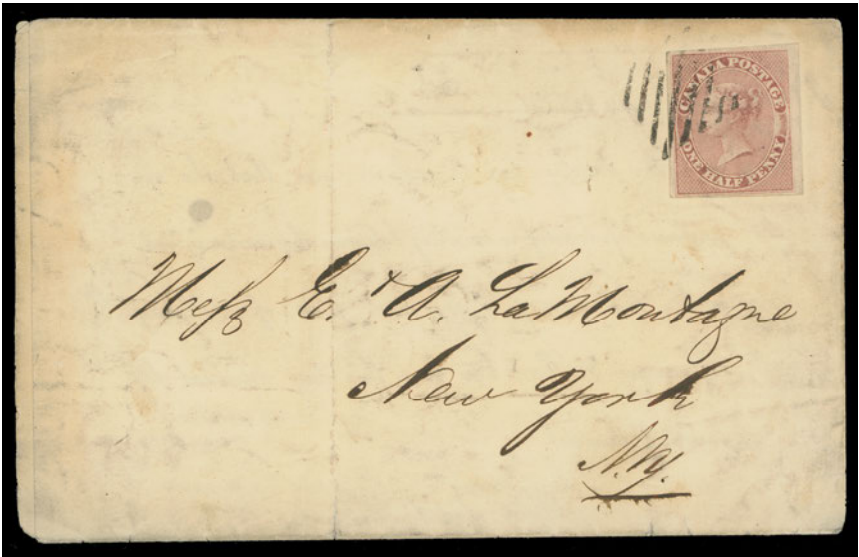 CANADA POSTAGE
ONE HALF PENNY
Mess E. & A. LaMontagne
New York
N.Y.